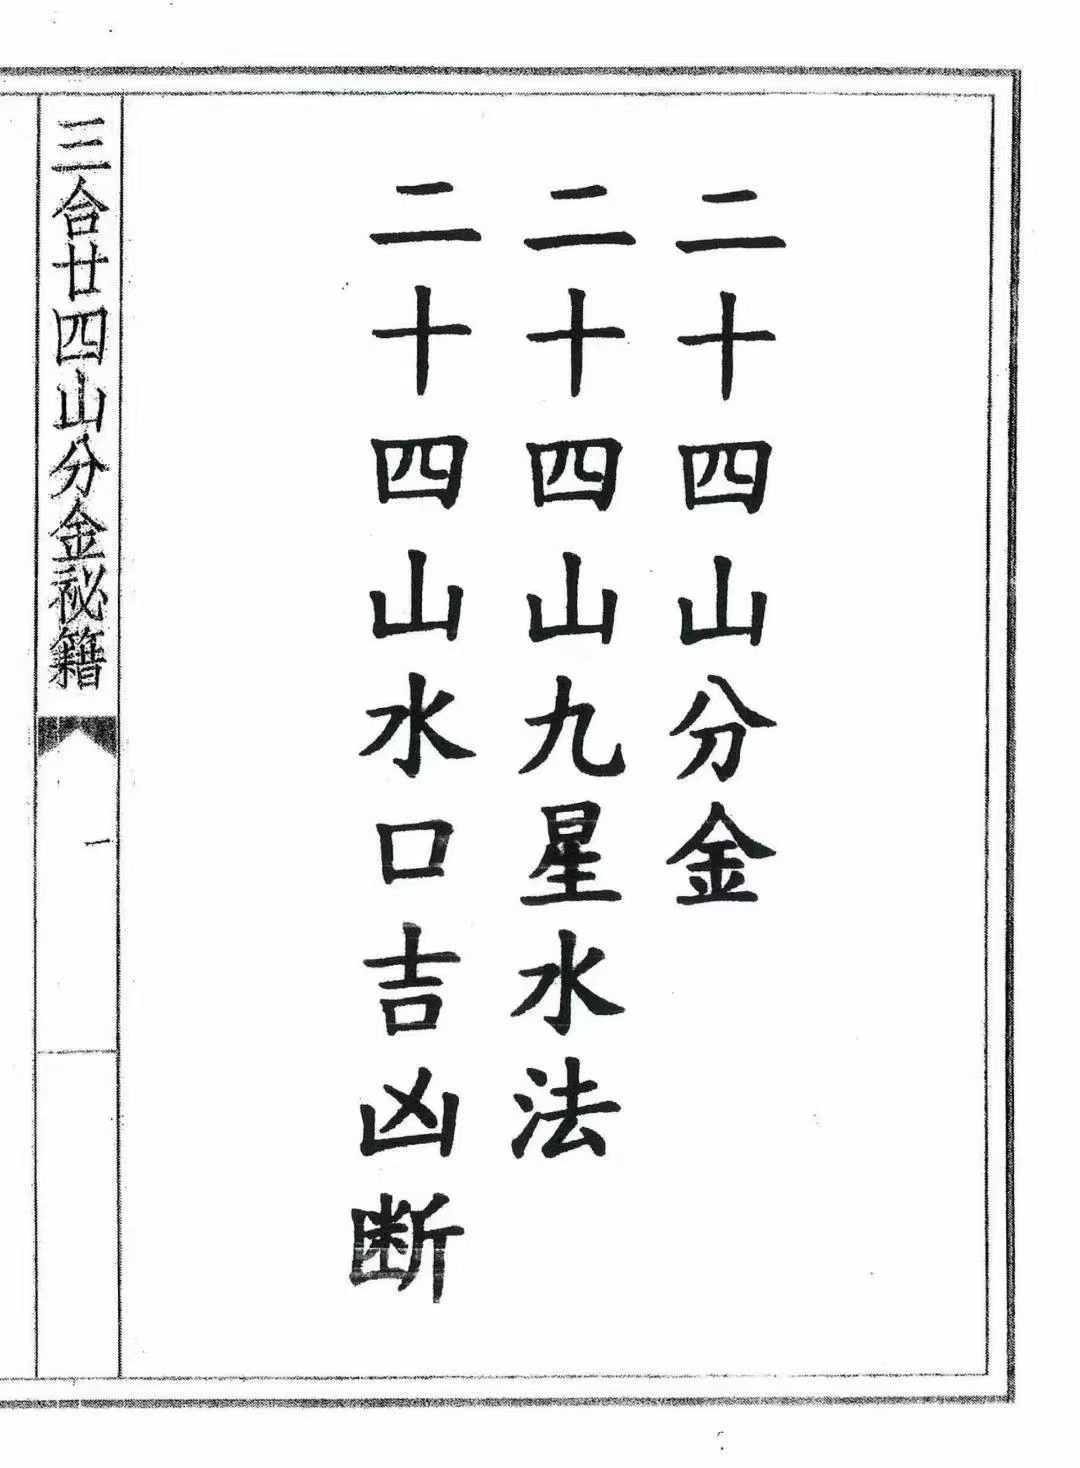 二十四山分金
二十四山九星水法
二十四山水口吉凶断
三合廿四山分金祕籍
一